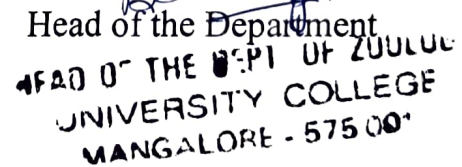 Head of the Department
HEAD OF THE DEPT OF ZOOLOG
UNIVERSITY COLLEGE
MANGALORE - 575 001